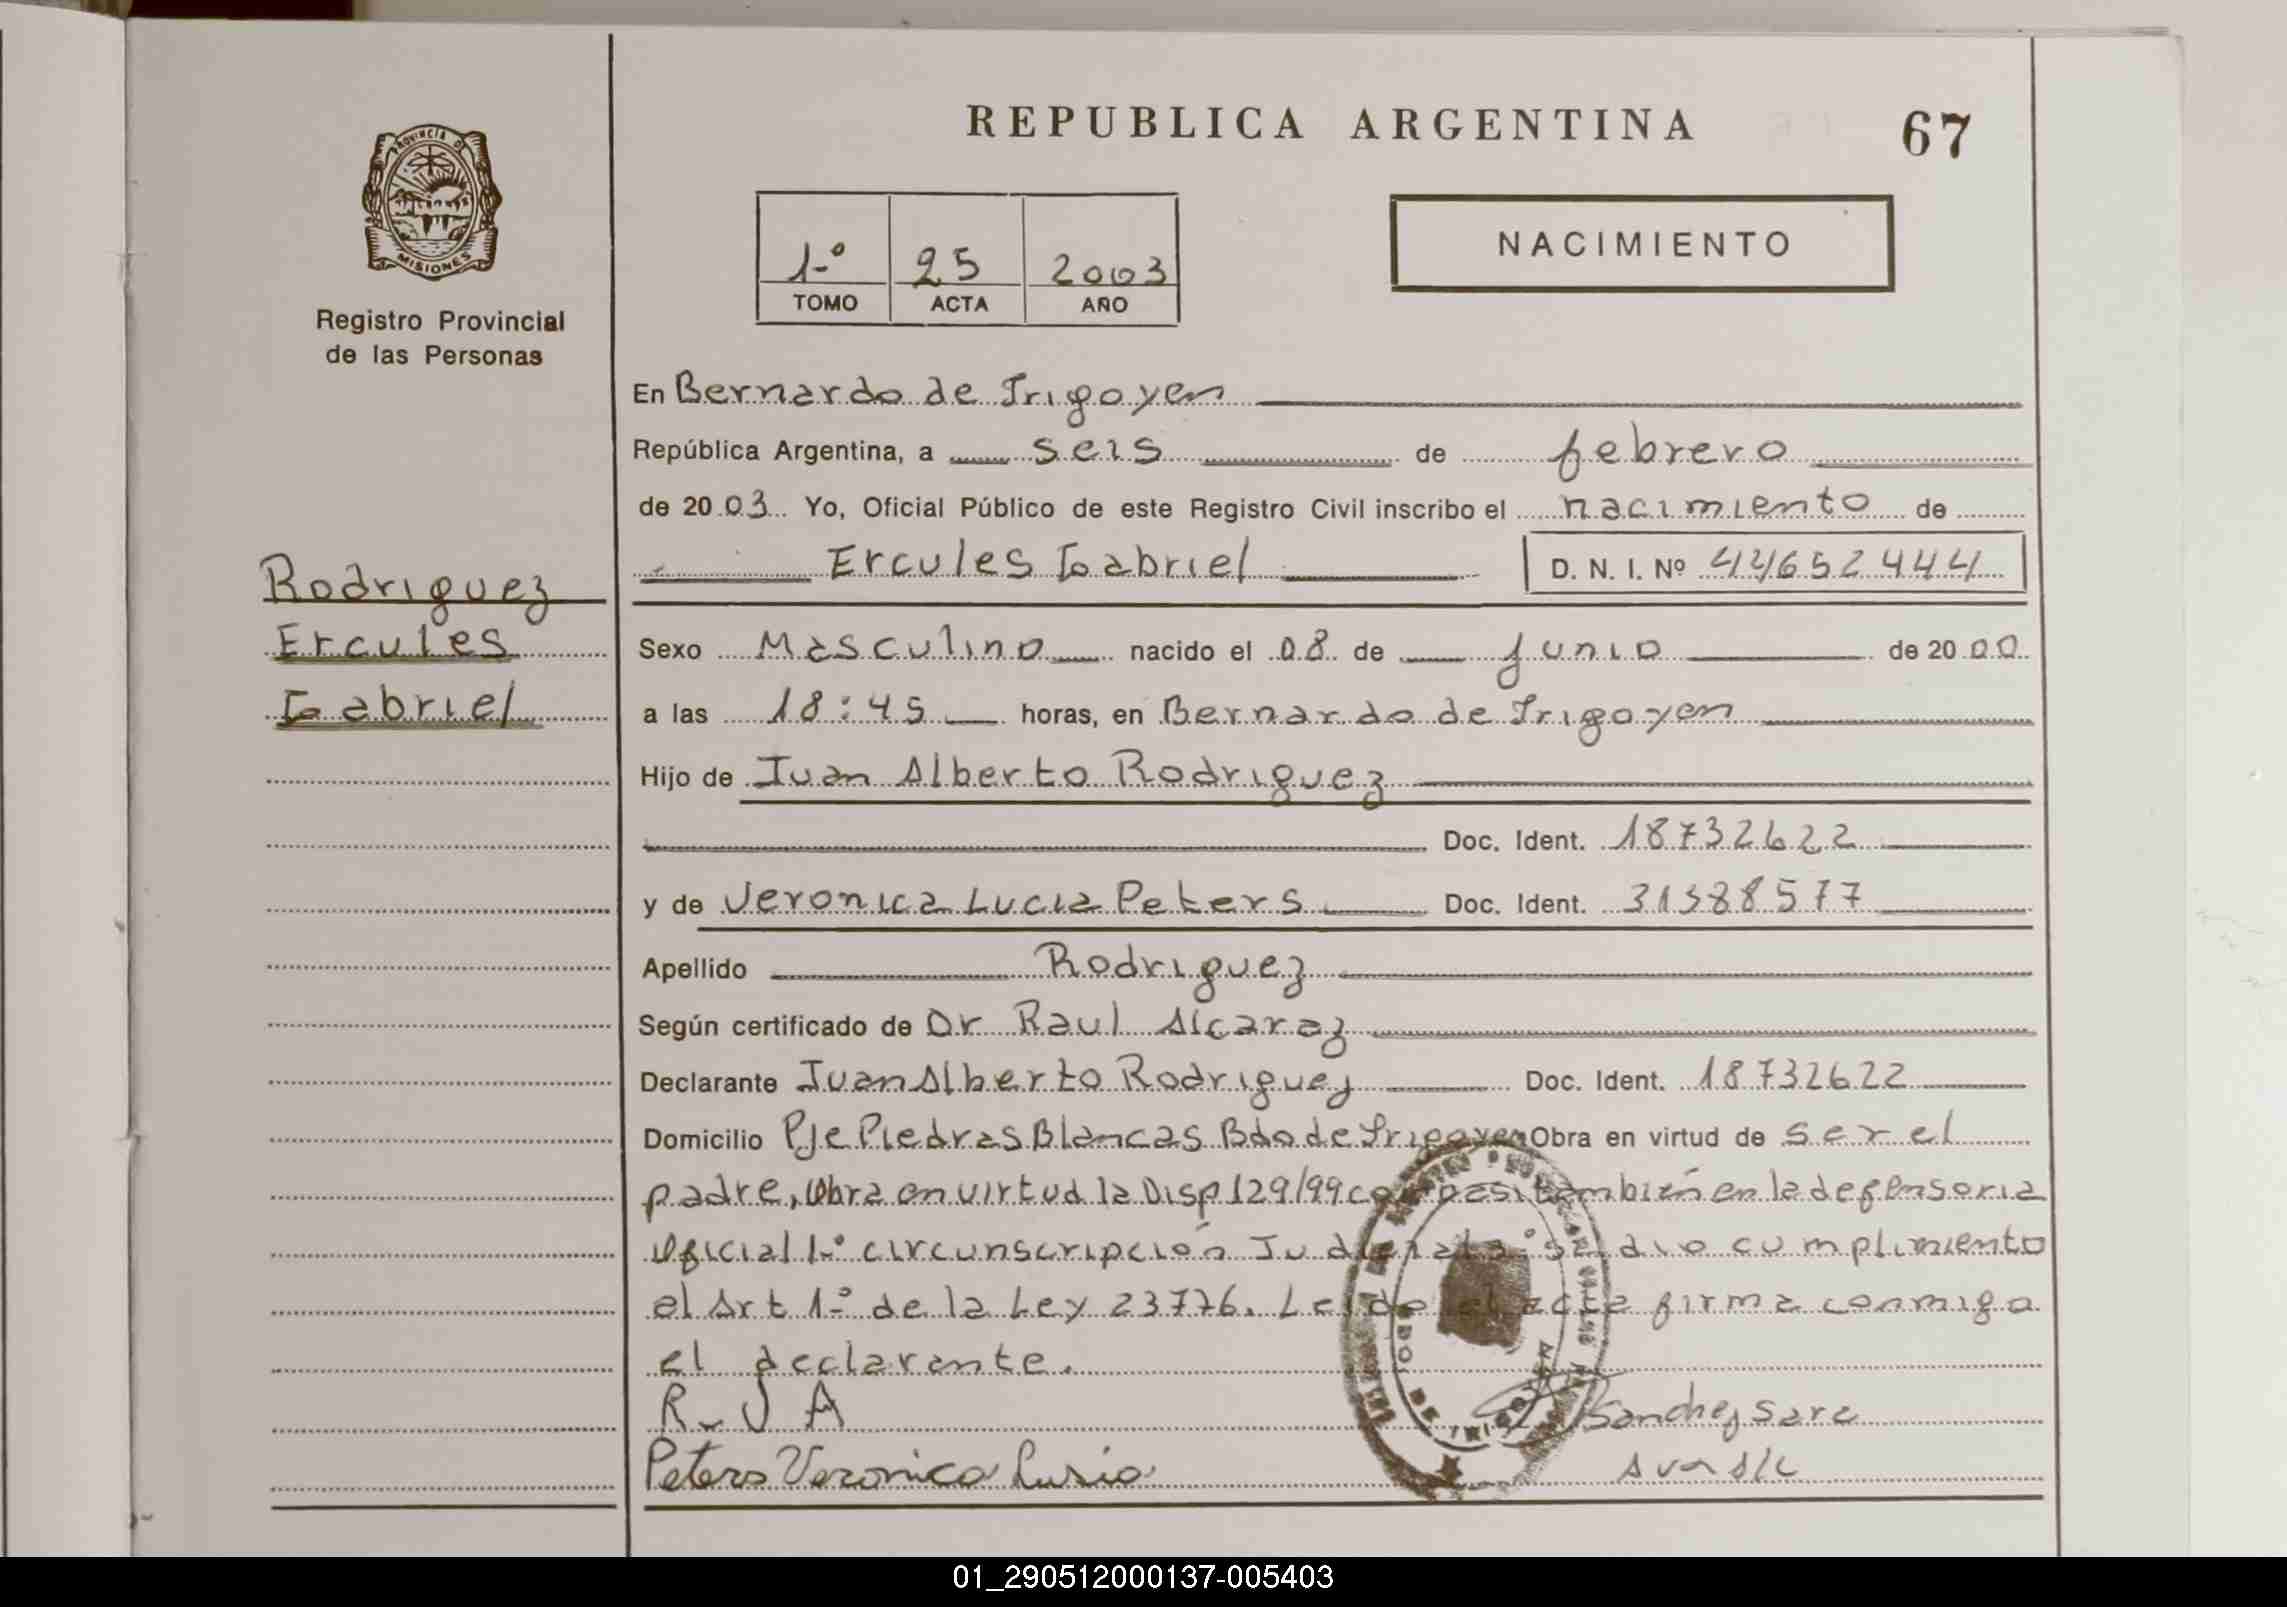 REPUBLICA ARGENTINA
67
PROVINCIA DE
MISIONES
Registro Provincial
de las Personas
1º 25 2003
TOMO ACTA AÑO
NACIMIENTO
En Bernardo de Irigoyen
República Argentina, a seis de febrero
de 2003 Yo, Oficial Público de este Registro Civil inscribo el nacimiento de
Ercules Gabriel D. N. I. Nº 42652444
Rodriguez
Ercules
Gabriel
Sexo Masculino nacido el 08 de junio de 2000
a las 18:45 horas, en Bernardo de Irigoyen
Hijo de Juan Alberto Rodriguez
Doc. Ident. 18732622
y de Veronica Lucia Peters Doc. Ident. 31388577
Apellido Rodriguez
Según certificado de Dr Raul Alcaraz
Declarante Juan Alberto Rodriguez Doc. Ident. 18732622
Domicilio Pje Piedras Blancas Bdo de Irigoyen Obra en virtud de ser el
padre, Obra en virtud la Disp 129/99 también en la defensoria
Oficial 1º circunscripción dio cumplimiento
al Art 1º de la Ley 23776. Leido el acta firma conmigo
el declarante.
R. J A
Sanchez Sara
Peters Veronica Lucia
DE
01_290512000137-005403